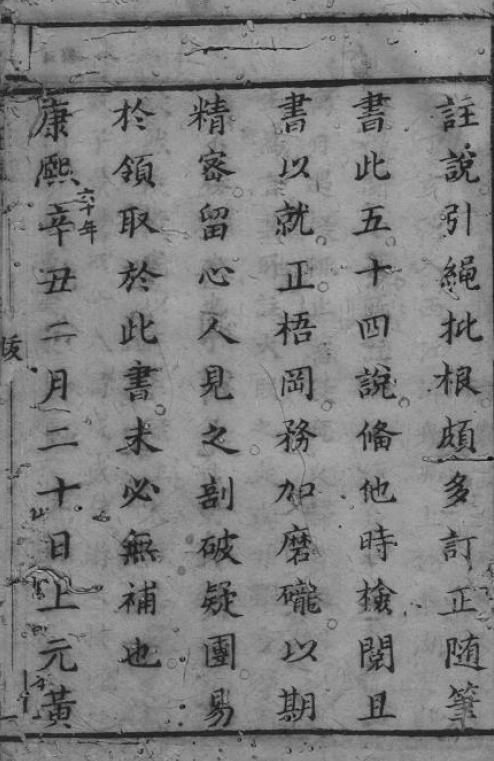 註說引繩批根頗多訂正随筆
書此五十四說俻他時檢閱且
書以就正梧岡務加磨礲以期
精審留心人見之剖破疑團易
於領取於此書未必無補也
康熈辛丑二月二十日上元黃
六十年